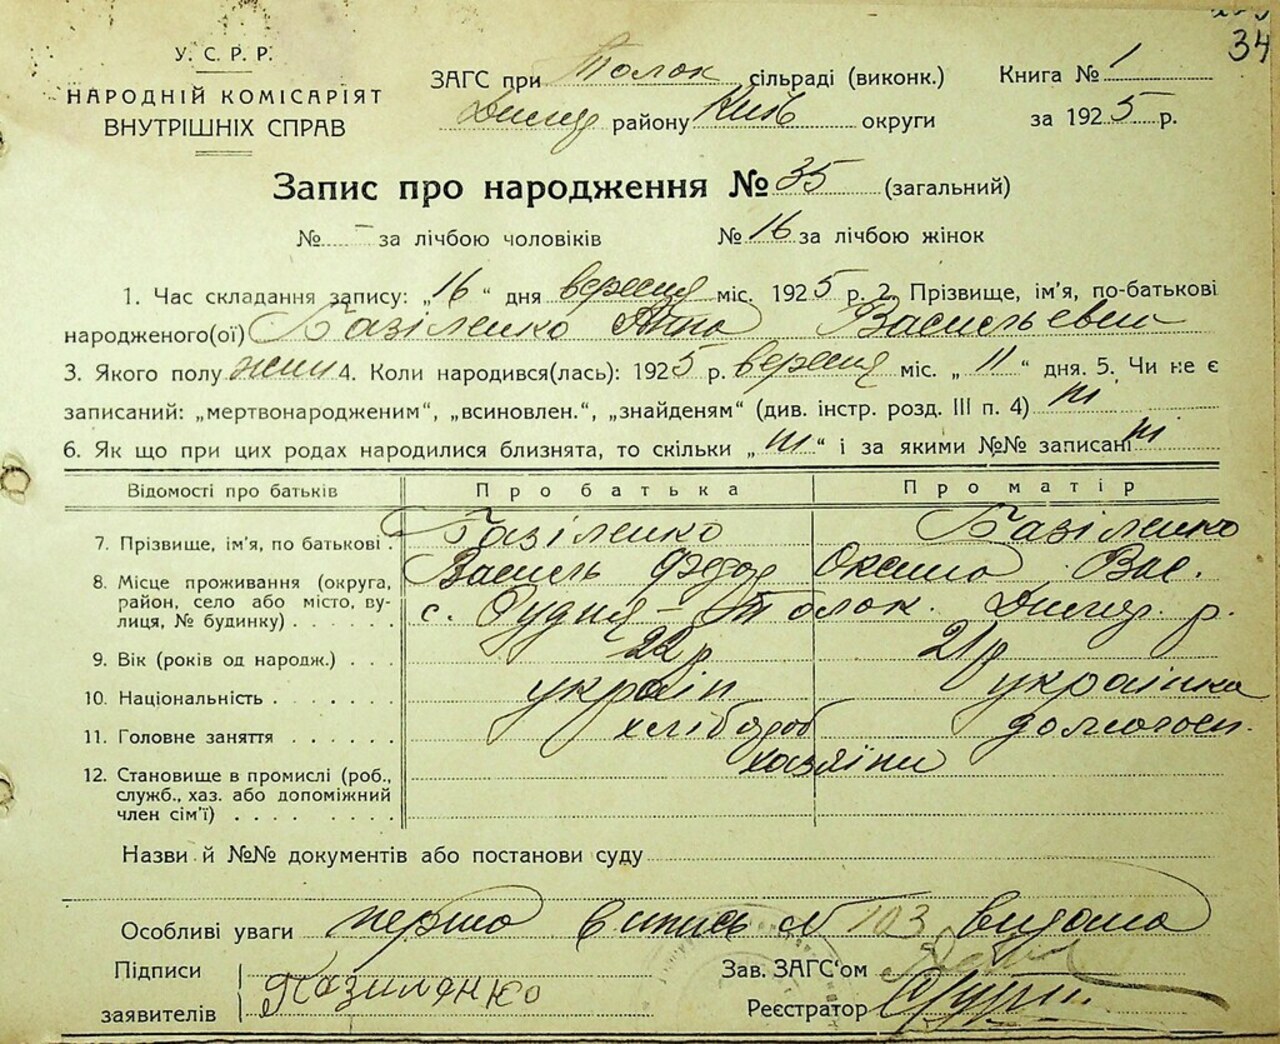 34
У. С. Р. Р.
НАРОДНІЙ КОМІСАРІЯТ
ВНУТРІШНІХ СПРАВ
ЗАГС при Толок сільраді (виконк.)
Димер району Київ округи
Книга № 1
за 1925 р.
Запис про народження № 35 (загальний)
№ - за лічбою чоловіків № 16 за лічбою жінок
1. Час складання запису: „16“ дня вересня міс. 1925 р. 2. Прізвище, ім'я, по-батькові
народженого(ої) Базіленко Анна Васильевни
3. Якого полу жин 4. Коли народився(лась): 1925 р. вересня міс. „11“ дня. 5. Чи не є
записаний: „мертвонародженим“, „всиновлен.“, „знайденям“ (див. інстр. розд. III п. 4) ні
6. Як що при цих родах народилися близнята, то скільки „ні“ і за якими №№ записані ні
Відомості про батьків Про батька Про матір
7. Прізвище, ім'я, по батькові . Базіленко Базіленко
Василь Федор Оксана Вас.
8. Місце проживання (округа,
район, село або місто, ву-
лиця, № будинку) . . . . . с. Рудня-Толок. Димер. р.
9. Вік (років од народж.) . . . 22 р 21 р
10. Національність . . . . . . україн українка
11. Головне заняття . . . . . . хлібороб домогосп.
12. Становище в промислі (роб.,
служб., хаз. або допоміжний
член сім'ї) . . . . . . . . . хазяїни
Назви й №№ документів або постанови суду
Особливі уваги перша випись № 103 видана
Підписи
заявителів Пазиленко
Зав. ЗАГС'ом
Реєстратор